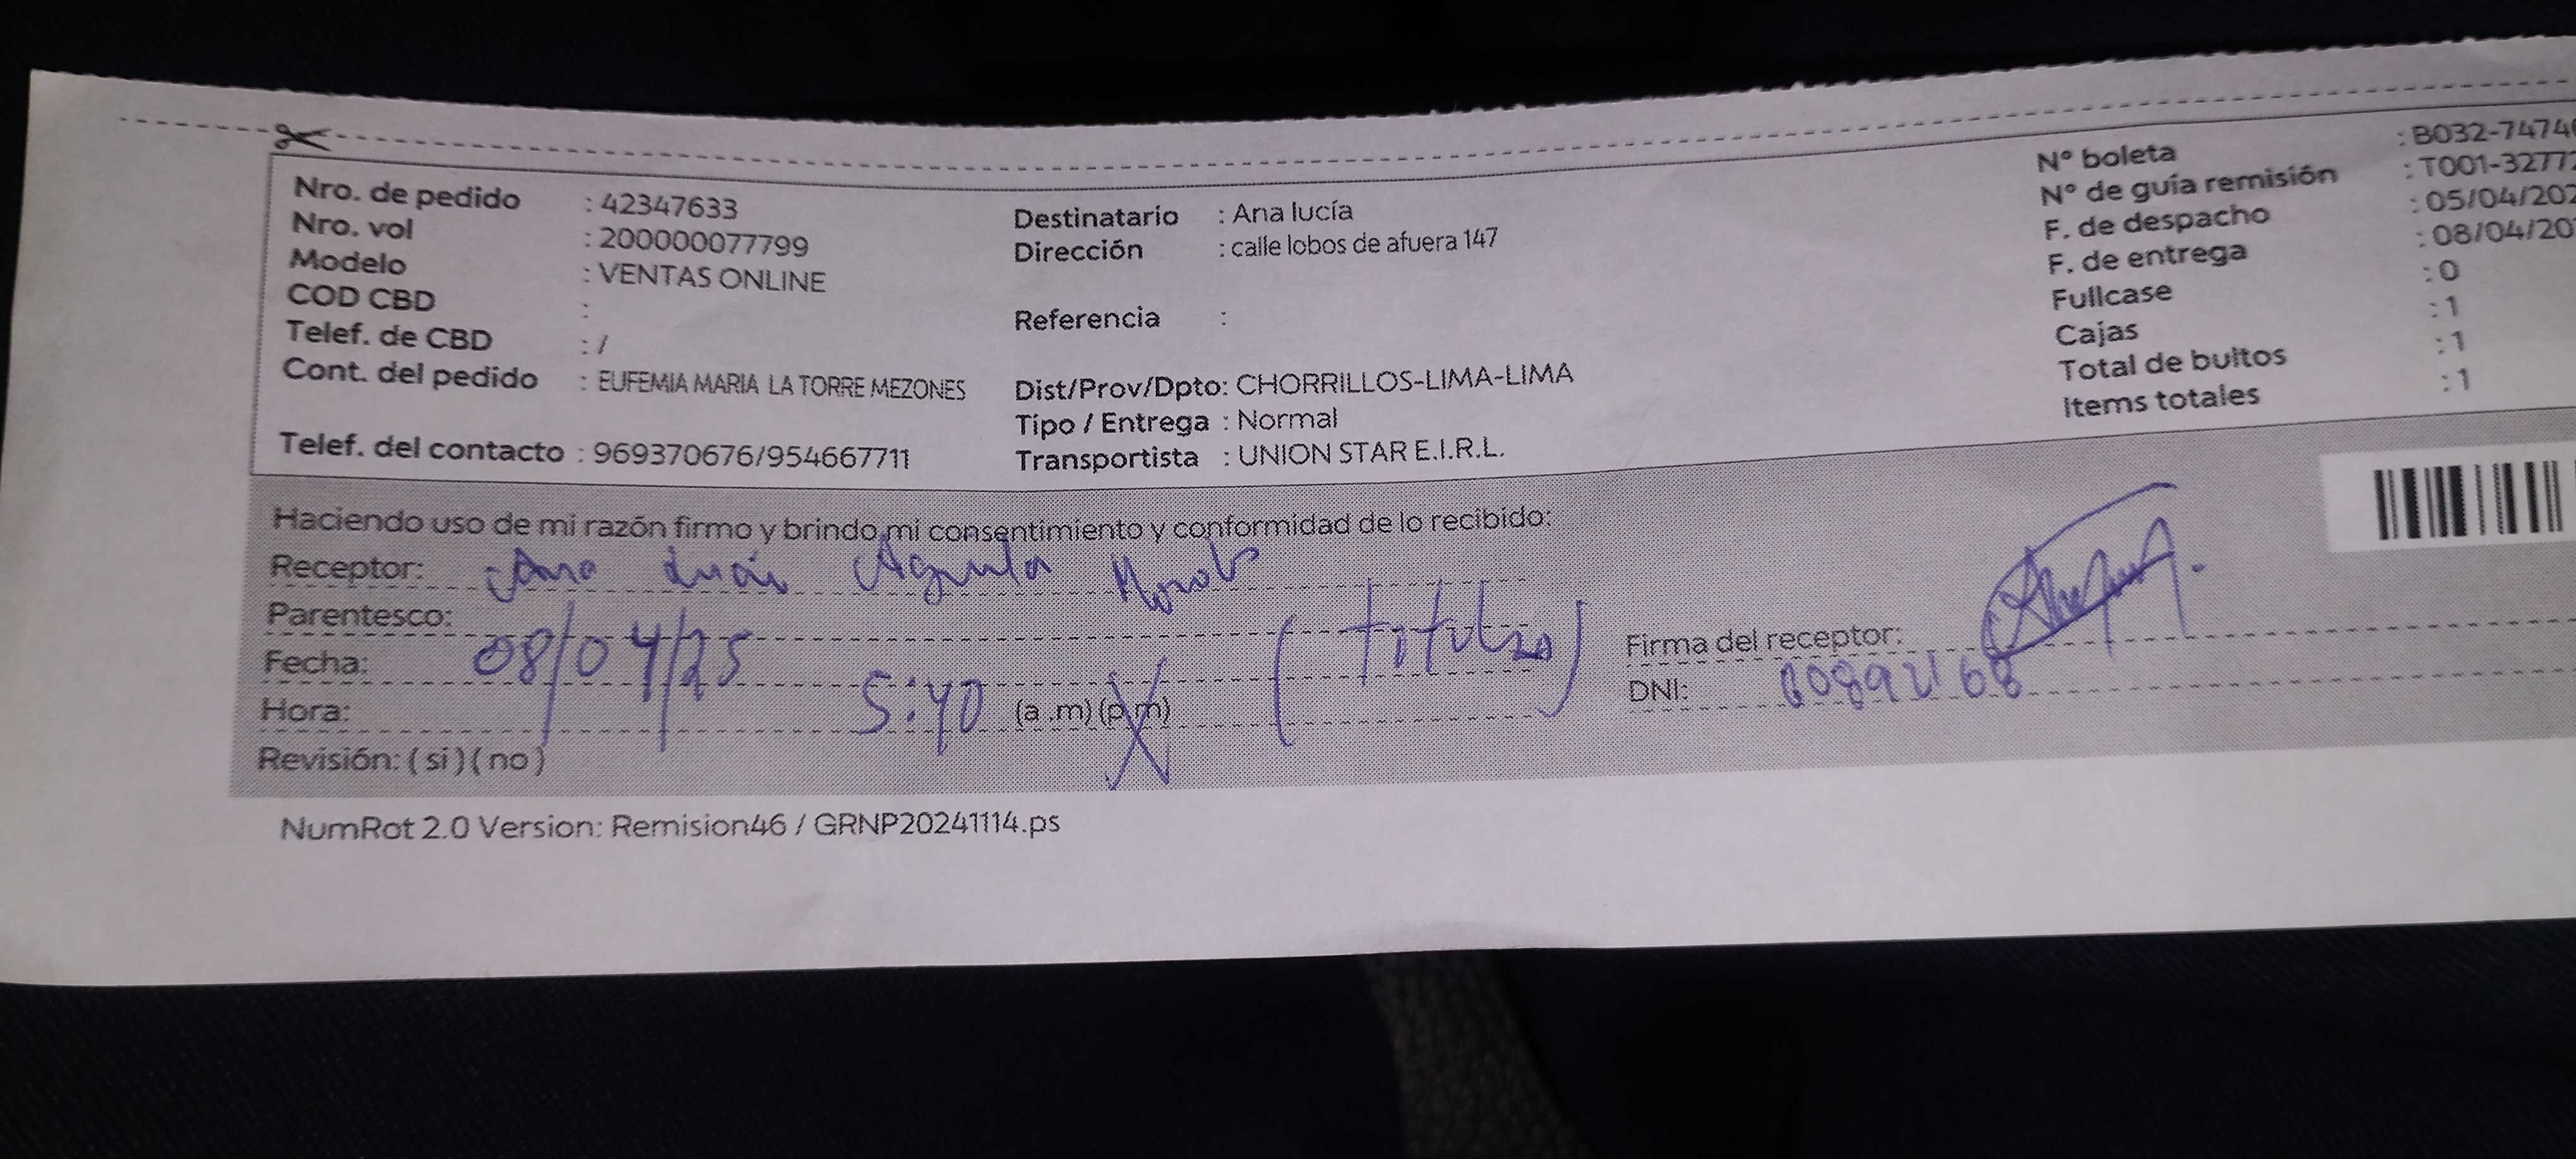 Nro. de pedido : 42347633
Nro. vol : 200000077799
Modelo : VENTAS ONLINE
COD CBD :
Telef. de CBD : /
Cont. del pedido : EUFEMIA MARIA LA TORRE MEZONES
Telef. del contacto : 969370676/954667711
Destinatario : Ana lucía
Dirección : calle lobos de afuera 147
Referencia :
Dist/Prov/Dpto: CHORRILLOS-LIMA-LIMA
Tipo / Entrega : Normal
Transportista : UNION STAR E.I.R.L.
N° boleta : B032-7474
N° de guía remisión : T001-3277
F. de despacho : 05/04/202
F. de entrega : 08/04/20
Fullcase : 0
Cajas : 1
Total de bultos : 1
Items totales : 1
Haciendo uso de mi razón firmo y brindo mi consentimiento y conformidad de lo recibido:
Receptor: Ana
Parentesco:
Fecha: 08/04/25
Hora: 5:40 (a .m) (p.m)
Revisión: ( si ) ( no )
Firma del receptor:
DNI:
NumRot 2.0 Version: Remision46 / GRNP20241114.ps